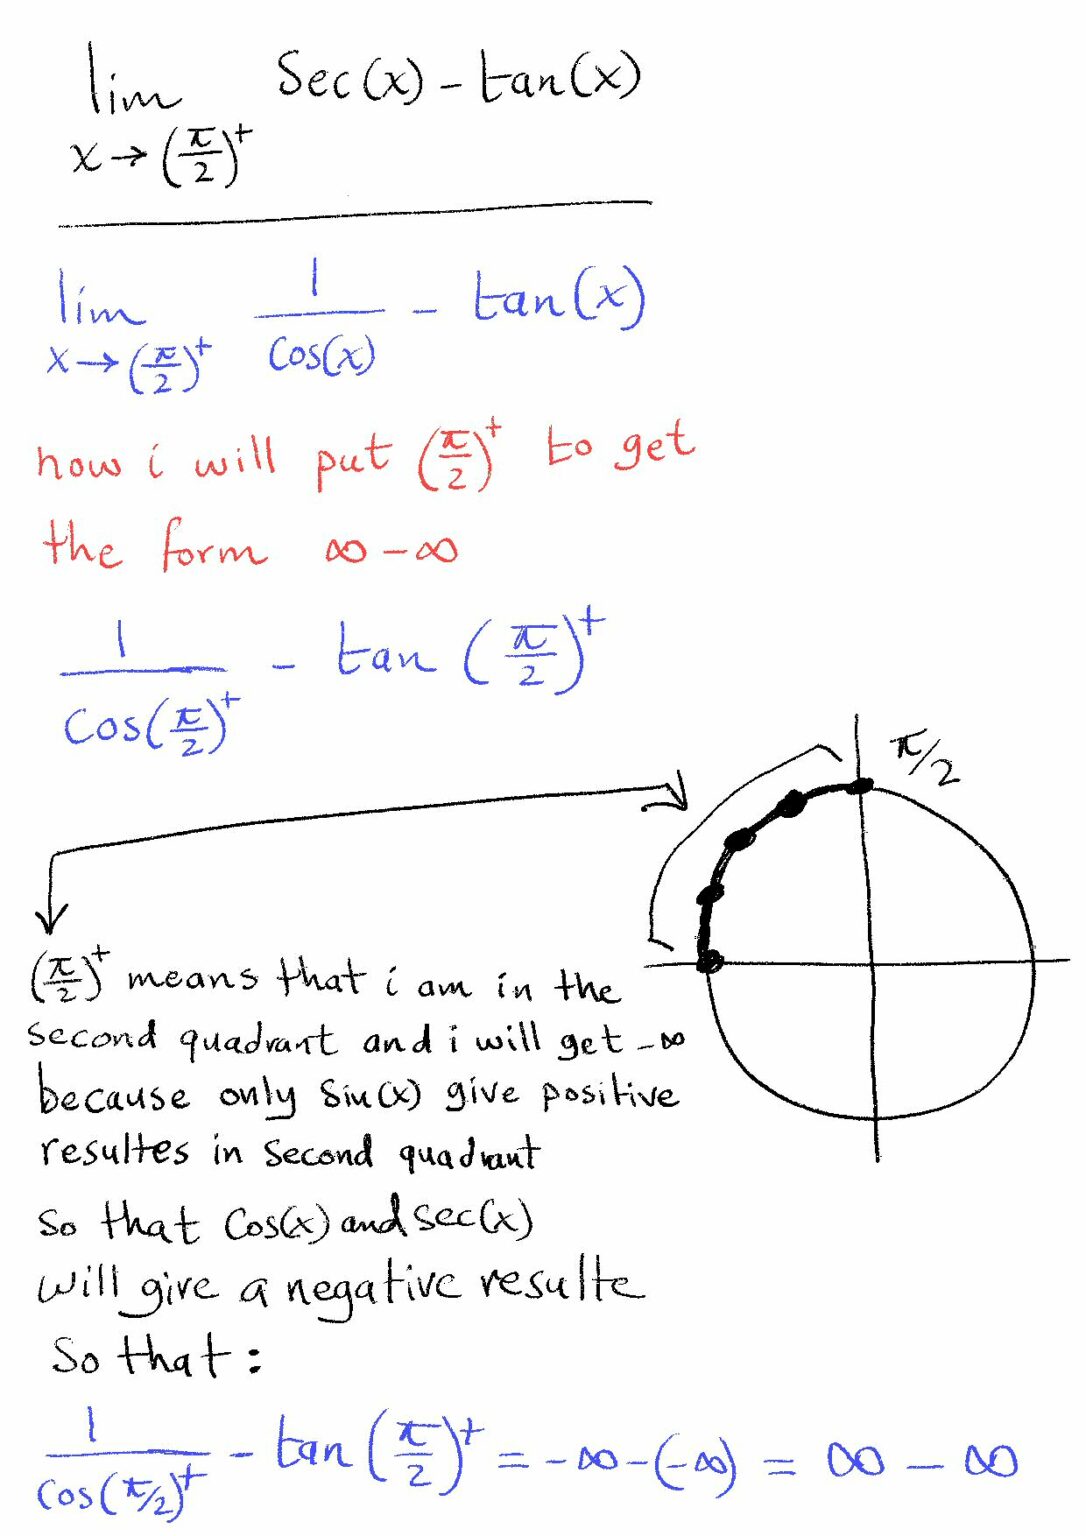 lim Sec(x) - tan(x)
x → (π/2)⁺
lim 1/cos(x) - tan(x)
x → (π/2)⁺
now i will put (π/2)⁺ to get
the form ∞ - ∞
1/cos(π/2)⁺ - tan (π/2)⁺
π/2
(π/2)⁺ means that i am in the
second quadrant and i will get -∞
because only Sin(x) give positive
resultes in second quadrant
so that Cos(x) and sec(x)
will give a negative resulte
So that:
1/cos(π/2)⁺ - tan(π/2)⁺ = -∞ - (-∞) = ∞ - ∞